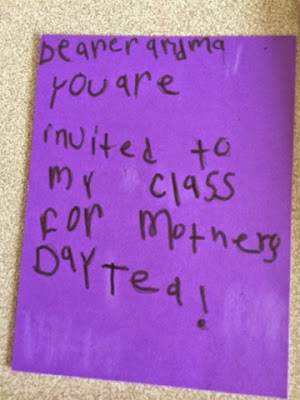 Deanerandma
you are
invited to
my class
For Mothers
Day Tea!